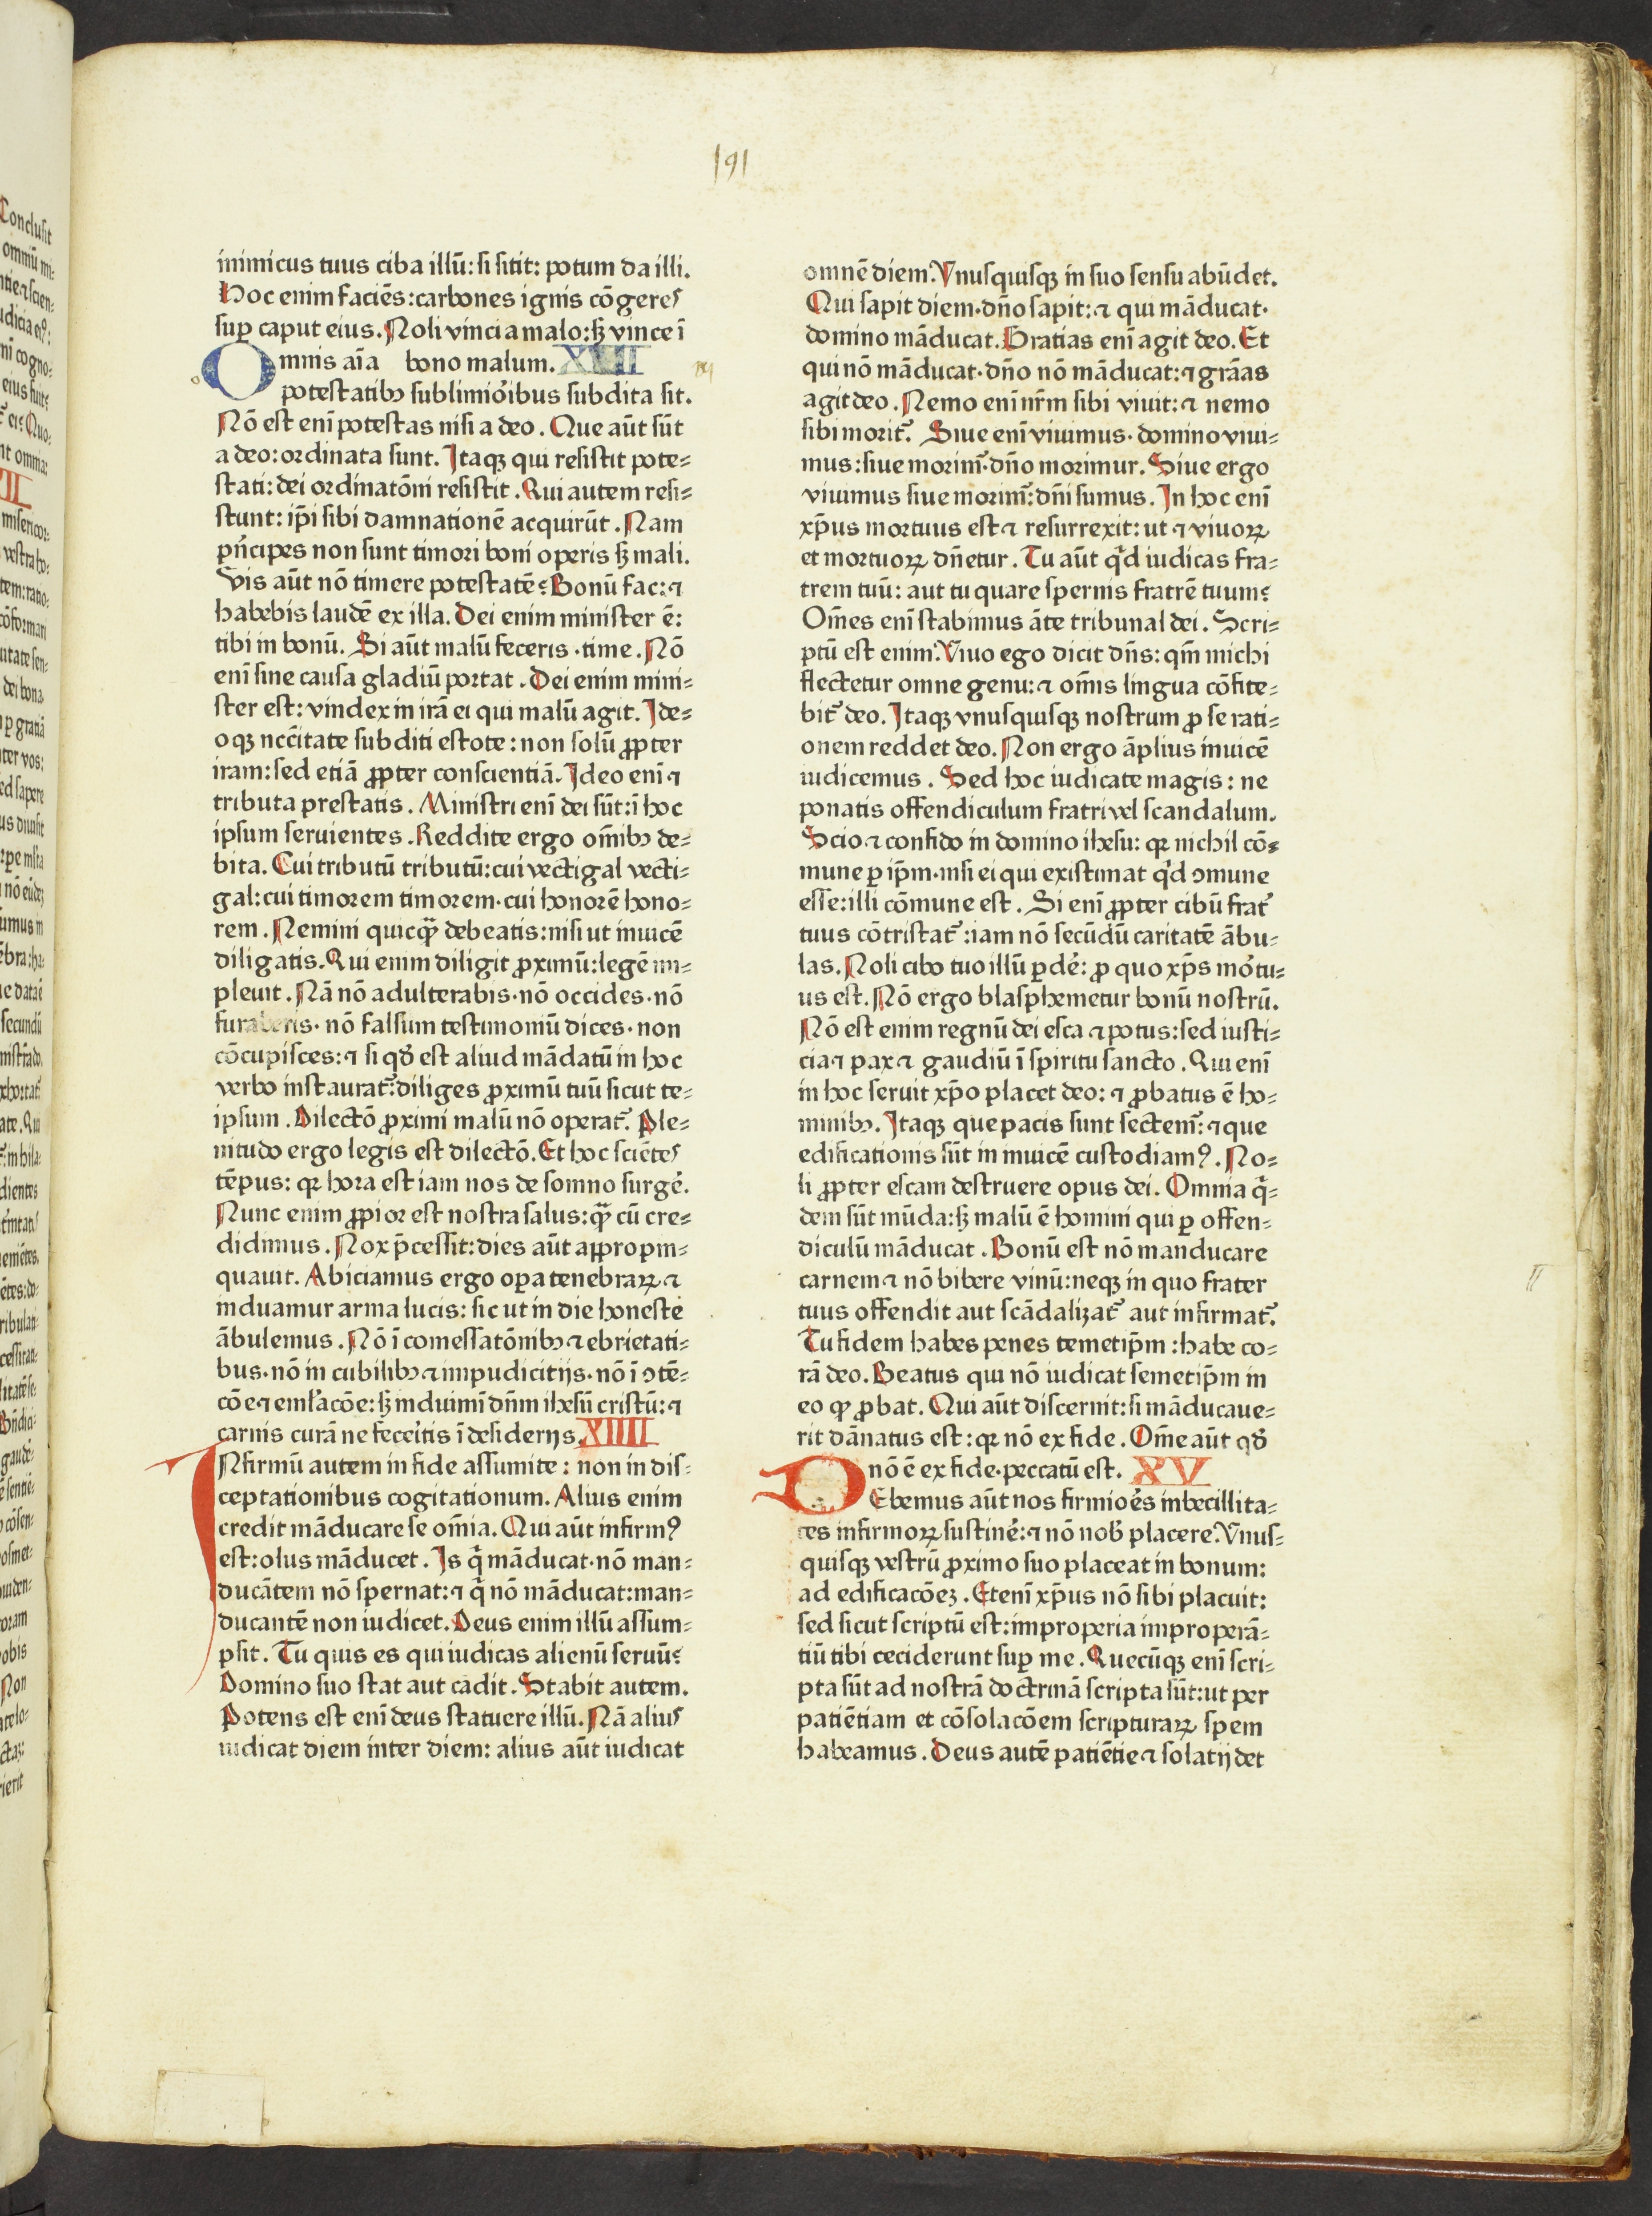 191
inimicus tuus ciba illū: si sitit: potum da illi.
Hoc enim faciēs: carbones ignis cōgeres
sup caput eius. Noli vinci a malo: sꝫ vince ī
Omnis aīa bono malum. XIII
potestatibꝰ sublimiōibus subdita sit.
Nō est enī potestas nisi a deo. Que aūt sūt
a deo: ordinata sunt. Itaqꝫ qui resistit pote⸗
stati: dei ordinatōni resistit. Qui autem resi⸗
stunt: ip̄i sibi damnationē acquirūt. Nam
pn̄cipes non sunt timori boni operis sꝫ mali.
Vis aūt nō timere potestatē? Bonū fac: ⁊
habebis laudē ex illa. Dei enim minister ē:
tibi in bonū. Si aūt malū feceris · time. Nō
enī sine causa gladiū portat. Dei enim mini⸗
ster est: vindex in irā ei qui malū agit. Ide⸗
oqꝫ nccītate subditi estote: non solū ꝓpter
iram: sed etiā ꝓpter conscientiā. Ideo enī ⁊
tributa prestatis. Ministri enī dei sūt: ī hoc
ipsum seruientes. Reddite ergo om̄ibꝰ de⸗
bita. Cui tributū tributū: cui vectigal vecti⸗
gal: cui timorem timorem · cui honorē hono⸗
rem. Nemini quicqꝫ̄ debeatis: nisi ut inuicē
diligatis. Qui enim diligit ꝓximū: legē im⸗
pleuit. Nā nō adulterabis · nō occides · nō
furaberis · nō falsum testimoniū dices · non
cōcupisces: ⁊ si qd̄ est aliud mādatū in hoc
verbo instaurat᷑: diliges ꝓximū tuū sicut te⸗
ipsum. Dilectō ꝓximi malū nō operat᷑. Ple⸗
nitudo ergo legis est dilectō. Et hoc sciētes
tēpus: qꝛ hora est iam nos de somno surgē.
Nunc enim ꝓpior est nostra salus: qꝫ̄ cū cre⸗
didimus. Nox p̄cessit: dies aūt appropin⸗
quauit. Abiciamus ergo oꝑa tenebraꝝ ⁊
induamur arma lucis: sic ut in die honeste
ābulemus. Nō ī comessatōnibꝰ ⁊ ebrietati⸗
bus · nō in cubilibꝰ ⁊ impudicitijs · nō ī ꝯtē⸗
cōe ⁊ eml̄acōe: sꝫ induimī dn̄m ihesū cristū: ⁊
carnis curā ne fecēitis ī desiderijs. XIIII
INfirmū autem in fide assumite: non in dis⸗
ceptationibus cogitationum. Alius enim
credit māducare se om̄ia. Qui aūt infirmꝰ
est: olus māducet. Is q̄ māducat · nō man⸗
ducātem nō spernat: ⁊ q̄ nō māducat: man⸗
ducantē non iudicet. Deus enim illū assum⸗
psit. Tu quis es qui iudicas alienū seruū?
Domino suo stat aut cadit. Stabit autem.
Potens est enī deus statuere illū. Nā alius
iudicat diem inter diem: alius aūt iudicat
omnē diem. Vnusquisqꝫ in suo sensu abūdet.
Qui sapit diem · dn̄o sapit: ⁊ qui māducat ·
domino māducat. Gratias enī agit deo. Et
qui nō māducat · dn̄o nō māducat: ⁊ grāas
agit deo. Nemo enī nr̄m sibi viuit: ⁊ nemo
sibi morit᷑. Siue enī viuimus · domino viui⸗
mus: siue morim᷑ · dn̄o morimur. Siue ergo
viuimus siue morim᷑: dn̄i sumus. In hoc enī
xp̄us mortuus est ⁊ resurrexit: ut ⁊ viuoꝝ
et mortuoꝝ dn̄etur. Tu aūt qͥd iudicas fra⸗
trem tuū: aut tu quare spernis fratrē tuum?
Om̄es enī stabimus āte tribunal dei. Scri⸗
ptū est enim: Viuo ego dicit dn̄s: qm̄ michi
flectetur omne genu: ⁊ om̄is lingua cōfite⸗
bit᷑ deo. Itaqꝫ vnusquisqꝫ nostrum ꝓ se rati⸗
onem reddet deo. Non ergo āplius inuicē
iudicemus. Sed hoc iudicate magis: ne
ponatis offendiculum fratri vel scandalum.
Scio ⁊ confido in domino ihesu: qꝛ nichil cō⸗
mune ꝑ ip̄m · nisi ei qui existimat qͥd ꝯmune
esse: illi cōmune est. Si enī ꝓpter cibū frat᷑
tuus cōtristat᷑: iam nō secūdū caritatē ābu⸗
las. Noli cibo tuo illū ꝑdē: ꝓ quo xp̄s mōtu⸗
us est. Nō ergo blasphemetur bonū nostrū.
Nō est enim regnū dei esca ⁊ potus: sed iusti⸗
cia ⁊ pax ⁊ gaudiū ī spiritu sancto. Qui enī
in hoc seruit xp̄o placet deo: ⁊ ꝓbatus ē ho⸗
minibꝰ. Itaqꝫ que pacis sunt sectem᷑: ⁊ que
edificationis sūt in inuicē custodiamꝰ. No⸗
li ꝓpter escam destruere opus dei. Omnia q̄⸗
dem sūt mūda: sꝫ malū ē homini qui ꝑ offen⸗
diculū māducat. Bonū est nō manducare
carnem ⁊ nō bibere vinū: neqꝫ in quo frater
tuus offendit aut scādalizat᷑ aut infirmat᷑.
Tu fidem habes penes temetip̄m: habe co⸗
rā deo. Beatus qui nō iudicat semetip̄m in
eo qͦ ꝓbat. Qui aūt discernit: si māducaue⸗
rit dānatus est: qꝛ nō ex fide. Om̄e aūt qd̄
nō ē ex fide · peccatū est. XV
DEbemus aūt nos firmioēs inbecillita⸗
tes infirmoꝝ sustinē: ⁊ nō nob̄ placere. Vnus⸗
quisqꝫ vestrū ꝓximo suo placeat in bonum:
ad edificacōeꝫ. Etenī xp̄us nō sibi placuit:
sed sicut scriptū est: improperia improperā⸗
tiū tibi ceciderunt suꝑ me. Quecūqꝫ enī scri⸗
pta sūt ad nostrā doctrinā scripta sūt: ut per
patiētiam et cōsolacōem scripturaꝝ spem
habeamus. Deus autē patiētie ⁊ solatij det